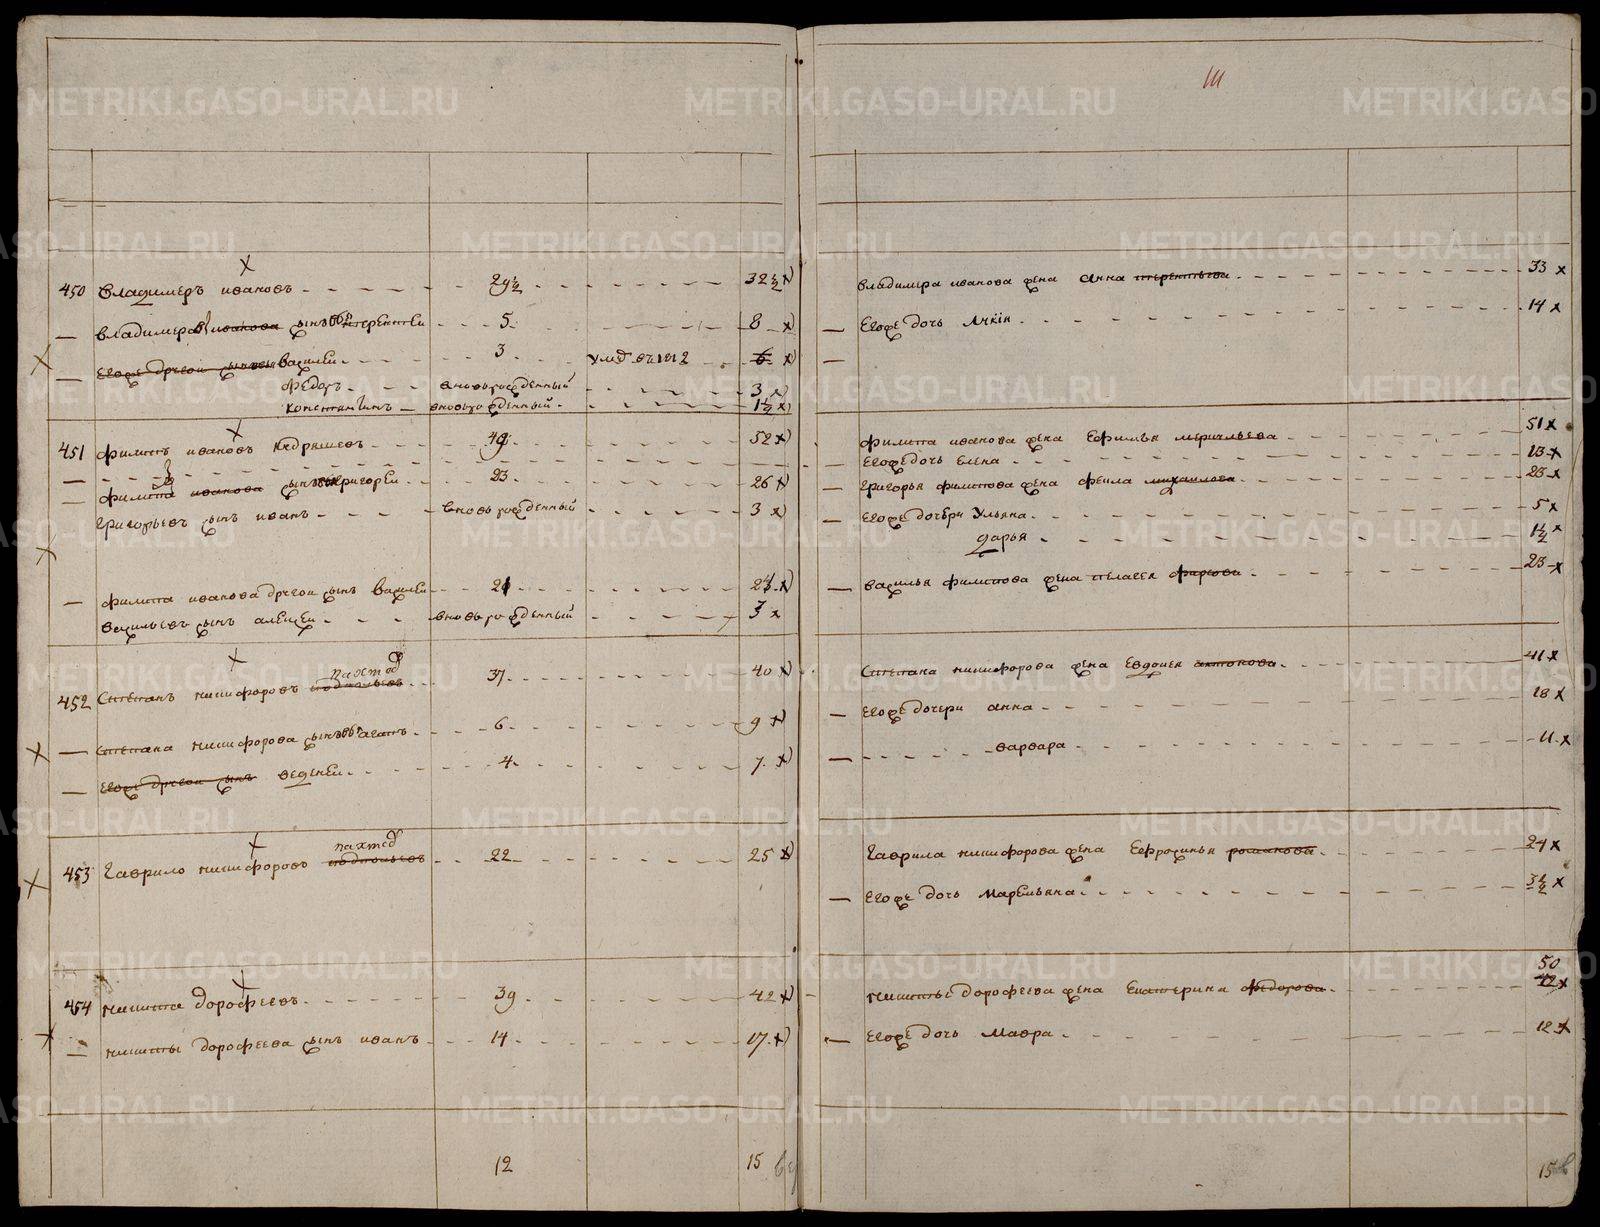 111
450 Владимеръ ивановъ 29½ 32½
Владимера иванова сынъ терентеи 5 8
Егоже другои сынъ василеи 3 умре въ 1812 6
Федоръ вновьрожденный 3
константинъ вновьрожденный 1½
451 Филипъ ивановъ 49 52
Филипа иванова сынъ григореи 23 26
григорьевъ сынъ иванъ вновьрожденный 3
Филипа иванова другои сынъ василеи 21 24
васильевъ сынъ алексеи вновьрожденный 3
452 Степанъ никифоровъ 37 40
Степана никифорова сынъ агапъ 6 9
Егоже другои сынъ веденеи 4 7
453 Гаврило никифоровъ 22 25
454 никита дорофеевъ 39 42
никиты дорофеева сынъ иванъ 14 17
12 15
Владимера иванова жена анна терентьева 33
Егоже дочь 14
Филипа иванова жена Ефимья 51
Егоже дочь Елена 13
григорья филипова жена фекла михаилова 23
Егоже дочери Ульяна 5
дарья 1½
василья филипова жена пелагея фирсова 23
Степана никифорова жена Евдокея антонова 41
Егоже дочери анна 18
варвара 11
Гаврила никифорова жена Ефросинья романова 24
Егоже дочь Маремьяна 3½
50
никиты дорофеева жена Екатерина федорова 42
Егоже дочь Мавра 12
15
METRIKI.GASO-URAL.RU